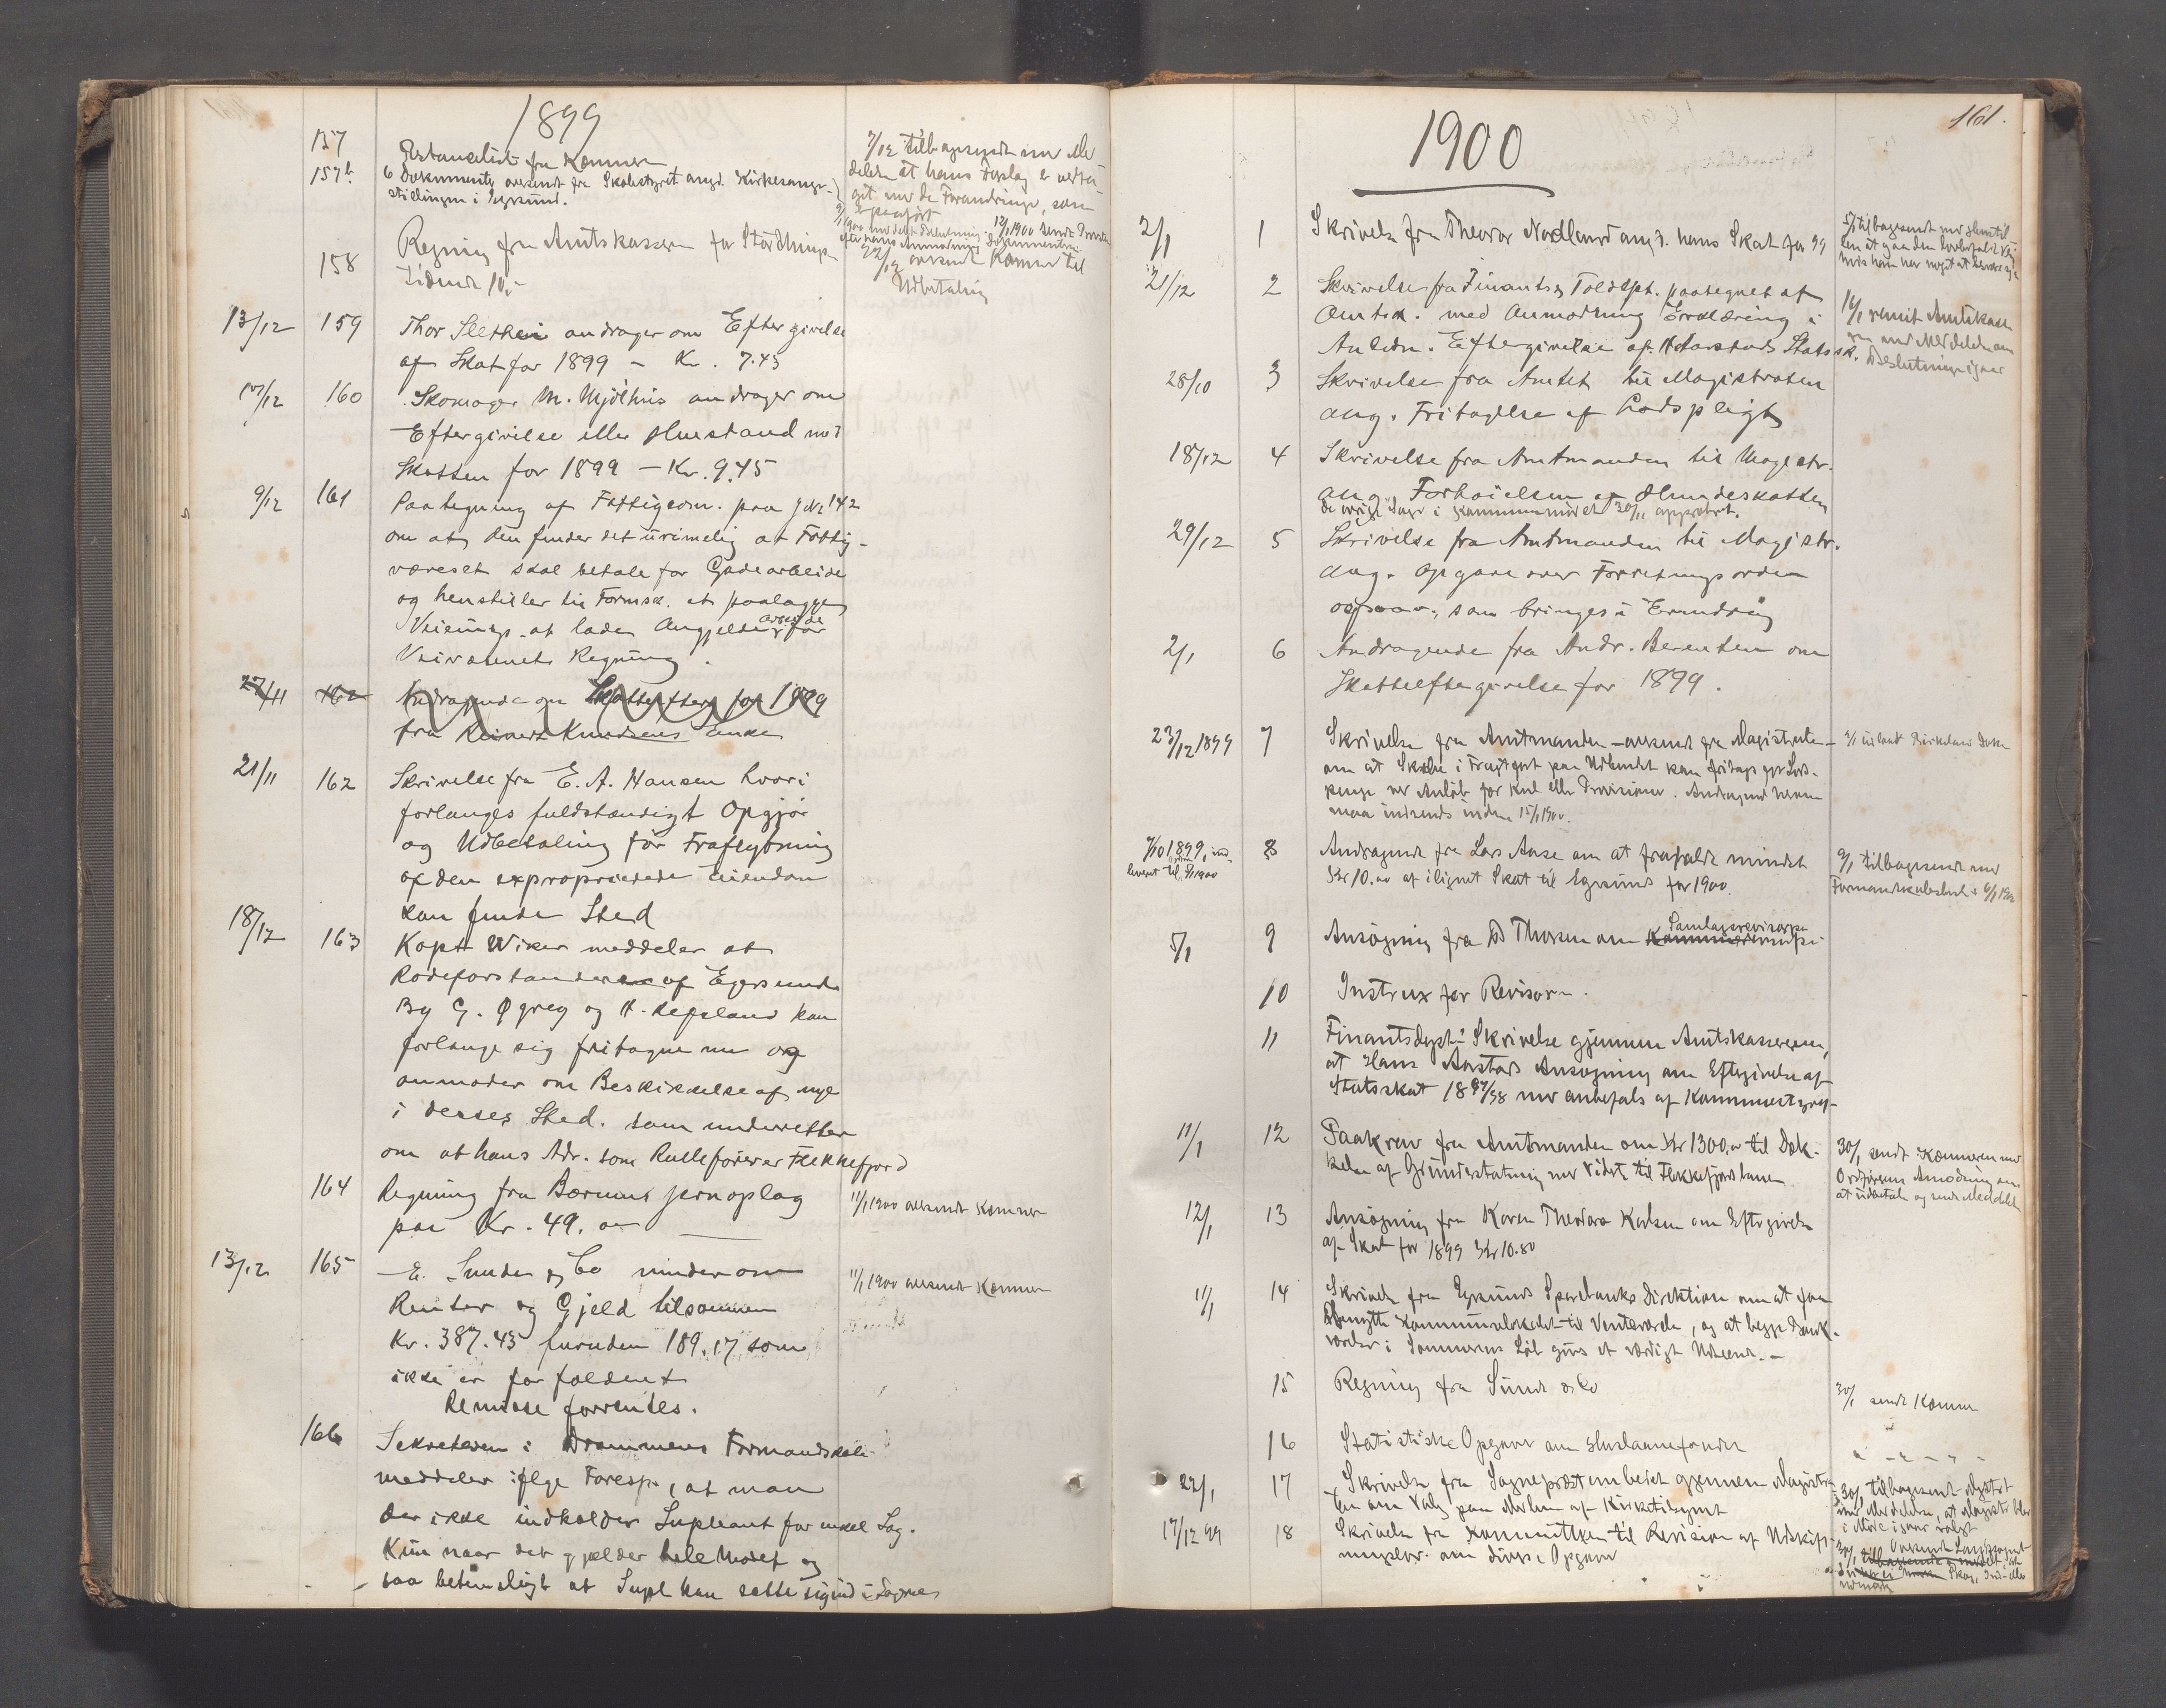 1899
157 Restanceliste fra Kæmneren
157b 6 Dokumenter oversendt fra Skolestyret angd. Kirkesanger-
stillingen i Egersund.
7/12 tilbagesendt med Med-
delelse at hans Forslag er vedta-
get med de Forandringer, som
er paaført
12/1 1900 sendt
efter hans Anmodning Dokumenterne
158 Regning fra Amtskasseren for Storthings-
tidende 10,-
22/12 oversendt Kæmner til
Udbetaling
13/12 159 Thor Slethei andrager om Eftergivelse
af Skat for 1899 – Kr. 7.43
160 Skomager M. Mjölhus andrager om
Eftergivelse eller Henstand med
Skatten for 1899 – Kr. 9.45
9/12 161 Paategning af Fattigcom. paa J.Nr 142
om at den finder det urimelig at Fattig-
væsenet skal betale for Gadearbeide
og henstiller til Formsk. at paalægge
at lade Angjeldende arbeide for
Veivæsenets Regning.
27/11 162 Andragende om Skatteefterg for 1899
fra Reinert Knudsens Enke
21/11 162 Skrivelse fra E. A. Hansen hvori
forlanges fuldstændigt Opgjör
og Udbetaling før Fraflytning
af den exproprierede Eiendom
kan finde Sted
18/12 163 Kapt Wiker meddeler at
Rodeforstanderne af Egersunds
By G. Øgrey og H. Køpland kan
forlange sig fritagne nu og
anmoder om Beskikkelse af nye
i deres Sted. samt underretter
om at hans Adr. som Rulleförer er Flekkefjord
164 Regning fra Bærums Jernoplag
paa Kr. 49.00
11/1 1900 oversendt Kæmner
13/12 165 E. Sunde & Co minder om
Renter og Gjeld tilsammen
Kr. 387.43 foruden 189.17 som
ikke er forfaldent
Remisse forventes.
11/1 1900 oversendt Kæmner
166 Sekretæren i Drammens Formandskab
meddeler ifølge Foresp., at man
der ikke indkalder Supleant for enkel Sag.
Kun naar det gjælder hele Mødet og
saa betimeligt at Supl kan sætte sig ind i Sagerne
161.
1900
2/1 1 Skrivelse fra Theodor Nodland angd. hans Skat for 99
5/1 tilbagesendt med Henstil-
len at gaa den lovbefalede Vei
hvis han har noget at bemærke
21/12 2 Skrivelse fra Finants og Tolddpt. paategnet af
Amtsk. med Anmodning Erklæring i
Anledn. Eftergivelse af H Aarstads Statssk.
11/1 remit Amtskasse-
ren med Meddelelse om
Beslutningen igaar
28/10 3 Skrivelse fra Amtet til Magistraten
ang. Fritagelse af Lodspligt
18/12 4 Skrivelse fra Amtmanden til Magistr.
ang. Forhöielsen af Hundeskatten
de øvrige Sager i Kommunemødet 30/11 approbert.
29/12 5 Skrivelse fra Amtmanden til Magistr.
ang. Opgave over Forretningsorden
som bringes i Erindring
2/1 6 Andragende fra Andr. Berentsen om
Skatteeftergivelse for 1899.
23/12 1899 7 Skrivelse fra Amtmanden – oversendt fra Magistraten –
om at Skibe i Fragtfart paa Udlandet kan fritages for Lods-
penge ved Anløb for Kul eller Provisioner. Andragende herom
maa indsendes inden 15/1 1900.
7/10 1899, ind-
leveret til 5/1 1900 8 Andragende fra Lars Aase om at frafalde mindst
Kr 10.00 af ilignet Skat til Egersund for 1900.
9/1 tilbagesendt med
Formandskabsbesl. 6/1 1900
5/1 9 Ansøgning fra Thorsen om Samlagsrevisorpo
10 Instrux for Revisoren.
11 Finantsdept. Skrivelse gjennem Amtskassereren,
at Hans Aarstads Ansøgning om Eftergivelse af
Statsskat 1897/98 maa anbefales af Kommunestyret
11/1 12 Paakrav fra Amtmanden om Kr 1300,00 til Dæk-
kelse af Grunderstatning med Videre til Flekkefjordbanen
30/1 sendt Kæmneren med
Ordførerens Anmodning om
at udbetale og sende Meddelelse
12/1 13 Ansøgning fra Karen Theodora Karlsen om Eftergivelse
af Skat for 1899 Kr 10.80
11/1 14 Skrivelse fra Egersunds Sparebanks Direktion om at faa
Benytte Kommunelokalet til Venteværelse, og at begge Bank-
værelser i Sommerens Løb gives et værdigt Udseende. –
15 Regning fra Sunde & Co
30/1 sendt Kæmner
16 Statistiske Opgaver om Huslaanefondet
22/1 17 Skrivelse fra Sogneprestembedet gjennem Magistra-
ten om Valg paa Medlem af Kirketilsynet
30/1 tilbagesendt Magistrat
med Meddelelse, at Magistr blev
i Møde igaar valgt
17/12 99 18 Skrivelse fra Kommitteen til Revision af Udskift-
ningslov. om divers. Opgaver
30/1 Oversendt